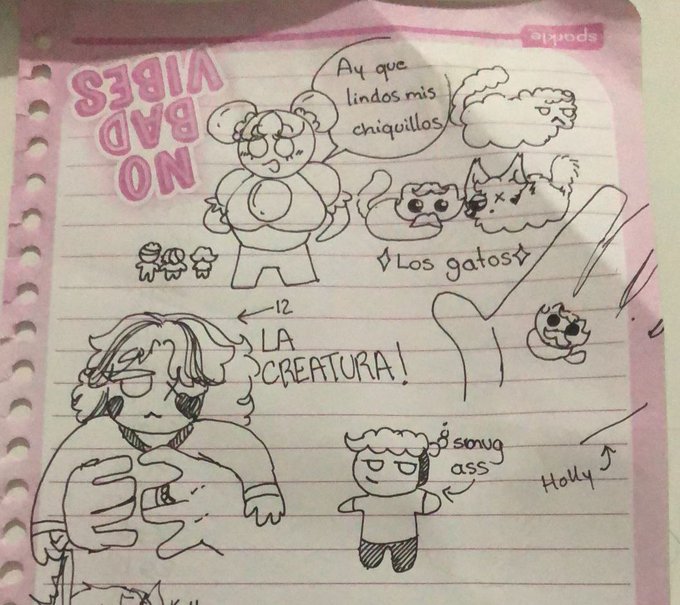 sparkle
NO
BAD
VIBES
Ay que
lindos mis
chiquillos
✧Los gatos✧
12
LA
CREATURA!
smug
ass
Holly